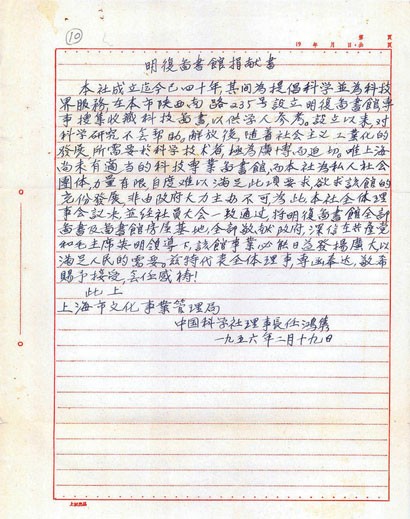 ⑩
19 年 月 日 第 頁 共 頁
明復啚書館捐献書
本社成立迄今已四十年,其间為提倡科学並為科技
界服務,在本市陕西南路235号設立明復啚書館專
事搜集收藏科技啚書,以供学人参考。設立以来,对
科学研究不無帮助。解放後,随着社会主义工業化的
發展,所需要求科学技术者極為廣博而迫切。唯上海
尚未有適当的科技專業啚書館,而本社為私人社会
團体力量有限自度难以满足此項要求,欲求該館的
充份發展,非由政府大力主办不可,為此本社全体理
事会議决,並経社員大会一致通过将明復啚書館全部
啚書及啚書館房屋基地,全部敬献政府,深信在共產党
和毛主席英明領導下,該館事業必能日益發揚廣大以
满足人民的需要。兹特代表全体理事,專函奉达,敬希
賜予接受,無任感祷!
此上
上海市文化事業管理局
中国科学社理事長任鴻隽
一九五六年二月十九日